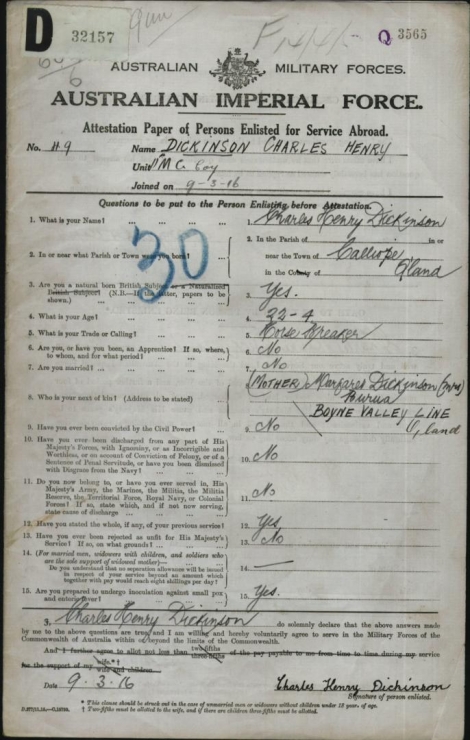 D 32157
Q 3565
AUSTRALIAN MILITARY FORCES.
AUSTRALIAN IMPERIAL FORCE.
Attestation Paper of Persons Enlisted for Service Abroad.
No. 49 Name DICKINSON CHARLES HENRY
Unit M.G. Coy
Joined on 9-3-16
Questions to be put to the Person Enlisting before Attestation.
1. What is your Name? ... ... ... 1. Charles Henry Dickinson
30
2. In or near what Parish or Town were you born? ... 2. In the Parish of in or
near the Town of Calliope
in the County of Q'land
3. Are you a natural born British Subject or a Naturalised
British Subject? (N.B.—If the latter, papers to be
shown.) ... ... ... 3. Yes.
4. What is your Age? ... ... ... 4. 32-4
5. What is your Trade or Calling? ... ... 5. Horse Breaker
6. Are you, or have you been, an Apprentice? If so, where,
to whom, and for what period? ... ... 6. No
7. Are you married? ... ... ... 7. No
8. Who is your next of kin? (Address to be stated) 8. (MOTHER) Margaret Dickinson (Mrs)
BOYNE VALLEY LINE
Q'land
9. Have you ever been convicted by the Civil Power? ... 9. No
10. Have you ever been discharged from any part of His
Majesty's Forces, with Ignominy, or as Incorrigible and
Worthless, or on account of Conviction of Felony, or of a
Sentence of Penal Servitude, or have you been dismissed
with Disgrace from the Navy? ... ... 10. No
11. Do you now belong to, or have you ever served in, His
Majesty's Army, the Marines, the Militia, the Militia
Reserve, the Territorial Force, Royal Navy, or Colonial
Forces? If so, state which, and if not now serving,
state cause of discharge ... ... 11. No
12. Have you stated the whole, if any, of your previous service? 12. Yes
13. Have you ever been rejected as unfit for His Majesty's
Service? If so, on what grounds? ... ... 13. No
14. (For married men, widowers with children, and soldiers who
are the sole support of widowed mother)—
Do you understand that no separation allowance will be issued
in respect of your service beyond an amount which
together with pay would reach eight shillings per day? 14. —
15. Are you prepared to undergo inoculation against small pox
and enteric fever? ... ... ... 15. Yes.
I, Charles Henry Dickinson do solemnly declare that the above answers made
by me to the above questions are true, and I am willing and hereby voluntarily agree to serve in the Military Forces of the
Commonwealth of Australia within or beyond the limits of the Commonwealth.
And I further agree to allot not less than two-fifths three-fifths of the pay payable to me from time to time during my service
for the support of my wife.* wife and children.
Date 9.3.16 Charles Henry Dickinson
Signature of person enlisted.
* This clause should be struck out in the case of unmarried men or widowers without children under 18 year, of age.
† Two-fifths must be allotted to the wife, and if there are children three-fifths must be allotted.